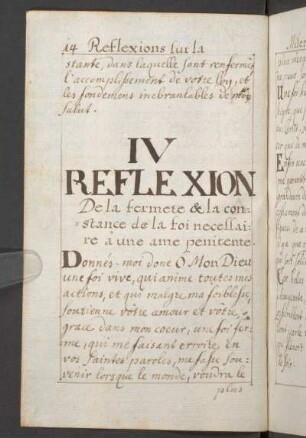 14 Reflexions sur la
stante, dans laquelle sont renfermés
l'accomplissement de vôtre Loy, et
les fondemens inebranlables de mon
Salut.
IV
REFLEXION
De la fermeté & la con-
stance de la foi necessai-
re à une ame penitente.
Donnés-moi donc Ô Mon Dieu
une foi vive, qui anime toutes mes
actions, et qui malgré ma foiblesse
soutienne vôtre amour et votre
grace dans mon coeur, une foi fer-
me, qui me faisant
vos saintes paroles, me fasse sou-
venir lorsque le monde, voudra le
plus